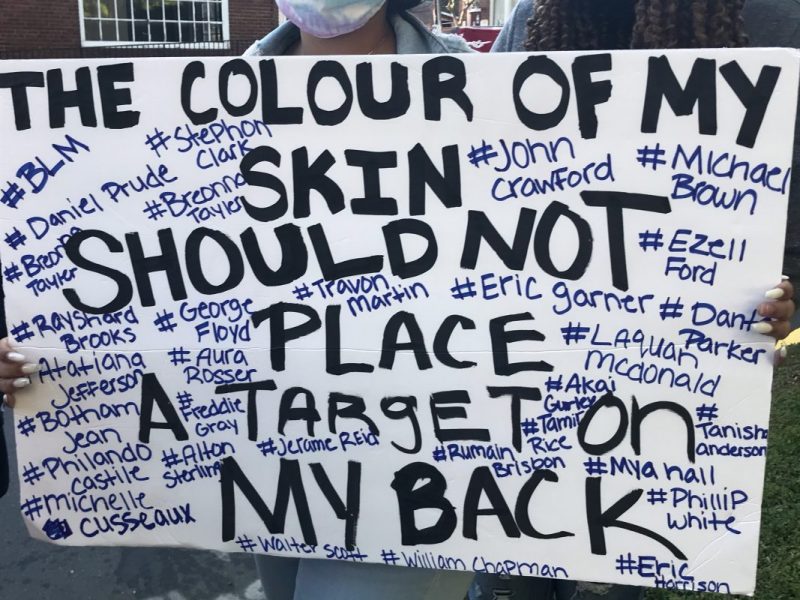 THE COLOUR OF MY
SKIN
SHOULD NOT
PLACE
A TARGET ON
MY BACK
#BLM
#Stephon
Clark
#Daniel Prude
#Breonna
Tayler
#Breonna
Tayler
#John
Crawford
#Michael
Brown
#Ezell
Ford
#Travon
Martin
#Eric garner
#Dant
Parker
#Rayshard
Brooks
#George
Floyd
#Laquan
mcdonald
#Atatiana
Jefferson
#Aura
Rosser
#Akai
Gurley
#Botham
Jean
#Freddie
Gray
#Tamir
Rice
#Tanish
anderson
#Philando
castile
#Alton
Sterling
#Jerame Reid
#Rumain
Brisbon
#Mya hall
#michelle
cusseaux
#Phillip
white
#Walter Scott
#William Chapman
#Eric
Harrison